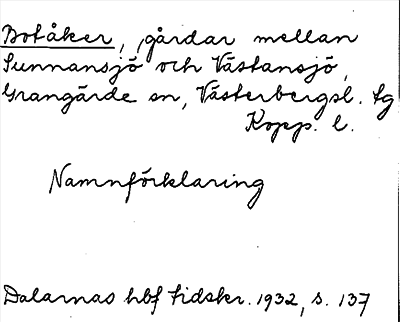 Botåker, gårdar mellan
Sunnansjö och Västansjö,
Grangärde sn, Västerbergsl. tg
Kopp. l.
Namnförklaring
Dalarnas hbf tidskr. 1932, s. 137